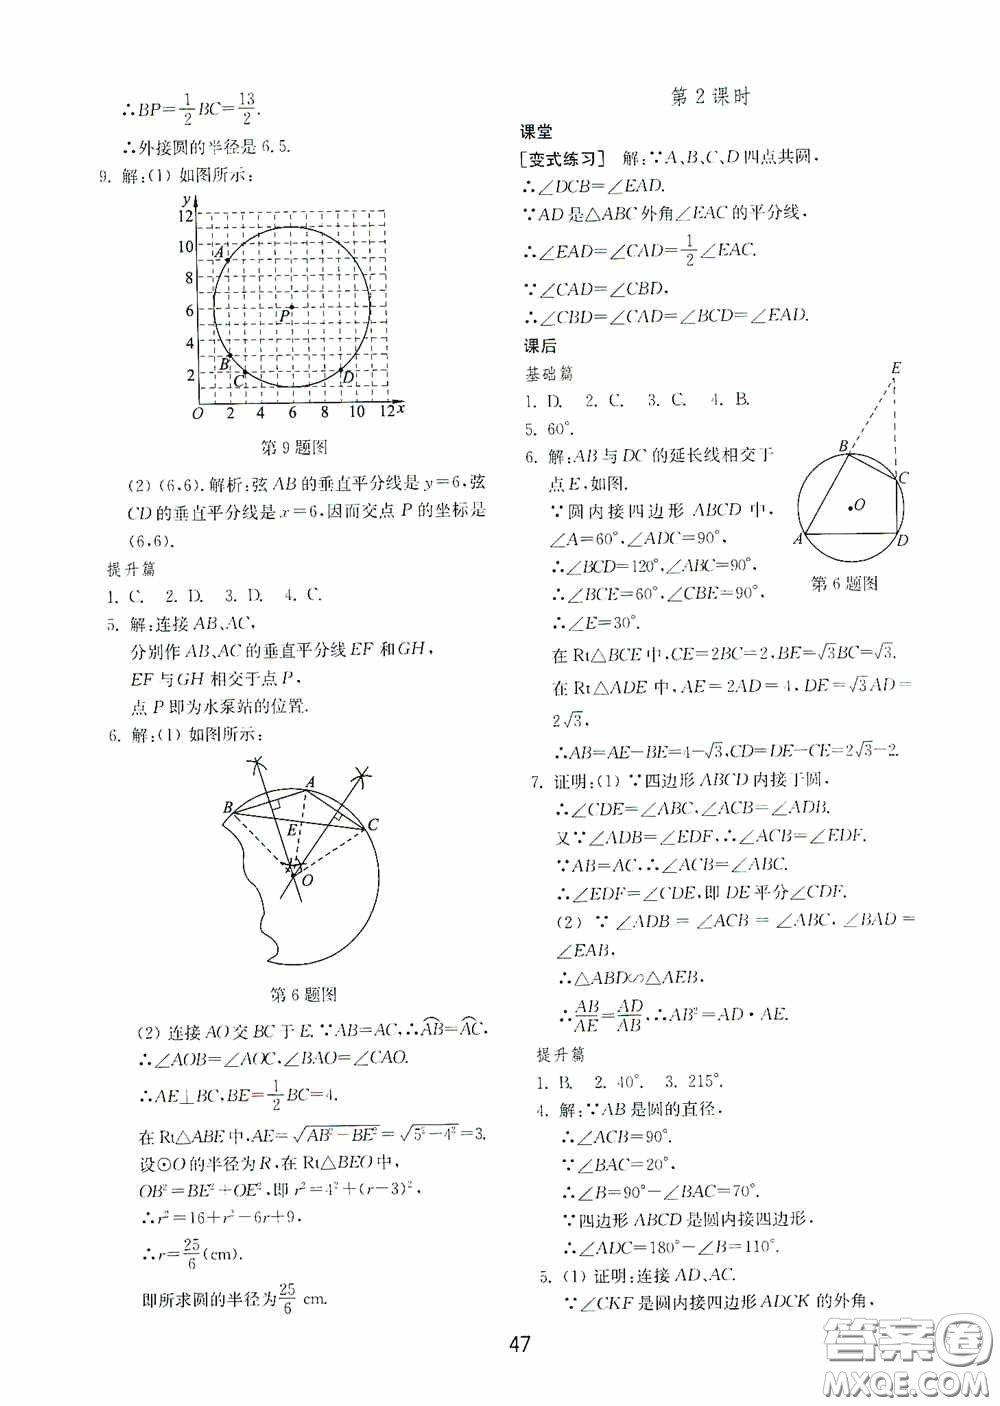 ∴BP=1/2 BC=13/2.
∴外接圆的半径是6.5.
9. 解:(1) 如图所示:
y
12
10
8
6
4
2
O 2 4 6 8 10 12 x
A
P
B
C
D
第9题图
(2) (6,6).解析:弦AB的垂直平分线是y=6,弦
CD的垂直平分线是x=6,因而交点P的坐标是
(6,6).
提升篇
1. C. 2. D. 3. D. 4. C.
5. 解:连接AB、AC,
分别作AB、AC的垂直平分线EF和GH,
EF与GH相交于点P,
点P即为水泵站的位置.
6. 解:(1) 如图所示:
A
B
E
C
O
第6题图
(2) 连接AO交BC于E.∵AB=AC,∴⌒AB=⌒AC,
∴∠AOB=∠AOC,∠BAO=∠CAO.
∴AE⊥BC,BE=1/2 BC=4.
在Rt△ABE中,AE=√(AB²-BE²)=√(5²-4²)=3.
设⊙O的半径为R,在Rt△BEO中,
OB²=BE²+OE²,即r²=4²+(r-3)²,
∴r²=16+r²-6r+9,
∴r=25/6(cm).
即所求圆的半径为25/6 cm.
第2课时
课堂
[变式练习] 解:∵A、B、C、D四点共网,
∴∠DCB=∠EAD.
∵AD是△ABC外角∠EAC的平分线,
∴∠EAD=∠CAD=1/2∠EAC.
∵∠CAD=∠CBD,
∴∠CBD=∠CAD=∠BCD=∠EAD.
课后
基础篇
1. D. 2. C. 3. C. 4. B.
5. 60°.
6. 解:AB与DC的延长线相交于
点E,如图.
∵圆内接四边形ABCD中,
∠A=60°,∠ADC=90°,
∴∠BCD=120°,∠ABC=90°.
∴∠BCE=60°,∠CBE=90°,
∴∠E=30°.
E
B
C
O
A
D
第6题图
在Rt△BCE中,CE=2BC=2,BE=√3BC=√3.
在Rt△ADE中,AE=2AD=4,DE=√3AD=
2√3,
∴AB=AE-BE=4-√3,CD=DE-CE=2√3-2.
7. 证明:(1) ∵四边形ABCD内接于圆,
∴∠CDE=∠ABC,∠ACB=∠ADB.
又∵∠ADB=∠EDF,∴∠ACB=∠EDF.
∵AB=AC,∴∠ACB=∠ABC.
∴∠EDF=∠CDE,即DE平分∠CDF.
(2) ∵∠ADB=∠ACB=∠ABC,∠BAD=
∠EAB,
∴△ABD∽△AEB,
∴AB/AE=AD/AB,∴AB²=AD·AE.
提升篇
1. B. 2. 40°. 3. 215°.
4. 解:∵AB是圆的直径,
∴∠ACB=90°.
∵∠BAC=20°,
∴∠B=90°-∠BAC=70°.
∵四边形ABCD是圆内接四边形,
∴∠ADC=180°-∠B=110°.
5. (1) 证明:连接AD、AC.
∵∠CKF是圆内接四边形ADCK的外角,
47
答案卷
MXQE.COM